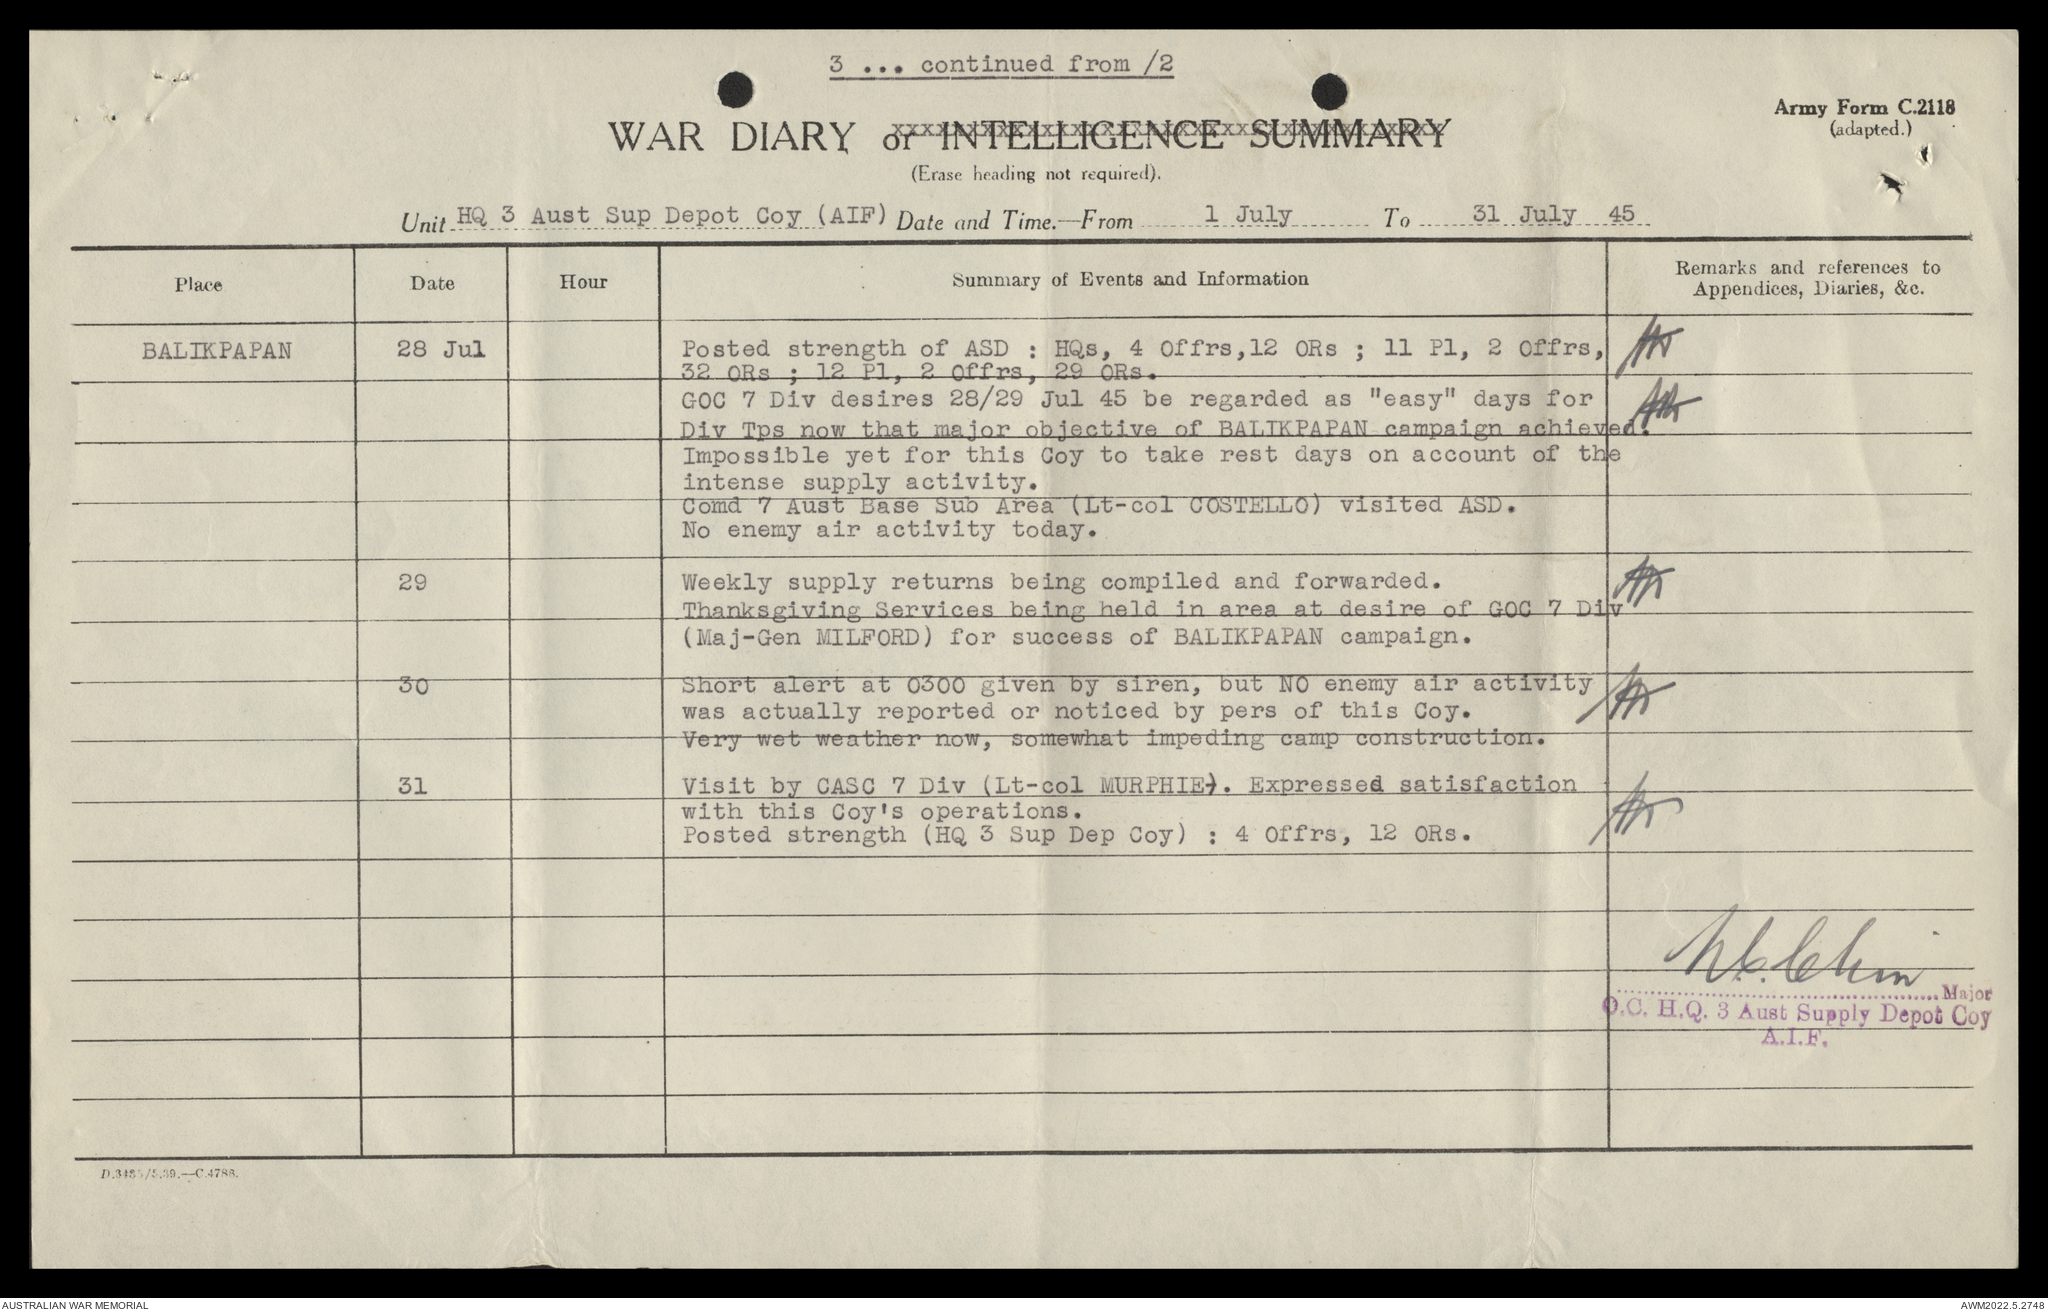 3 ... continued from /2
Army Form C.2118
(adapted.)
WAR DIARY or INTELLIGENCE SUMMARY
(Erase heading not required).
Unit HQ 3 Aust Sup Depot Coy (AIF) Date and Time.—From 1 July To 31 July 45
Place Date Hour Summary of Events and Information Remarks and references to
Appendices, Diaries, &c.
BALIKPAPAN 28 Jul Posted strength of ASD : HQs, 4 Offrs,12 ORs ; 11 Pl, 2 Offrs,
32 ORs ; 12 Pl, 2 Offrs, 29 ORs.
GOC 7 Div desires 28/29 Jul 45 be regarded as "easy" days for
Div Tps now that major objective of BALIKPAPAN campaign achieved.
Impossible yet for this Coy to take rest days on account of the
intense supply activity.
Comd 7 Aust Base Sub Area (Lt-col COSTELLO) visited ASD.
No enemy air activity today.
29 Weekly supply returns being compiled and forwarded.
Thanksgiving Services being held in area at desire of GOC 7 Div
(Maj-Gen MILFORD) for success of BALIKPAPAN campaign.
30 Short alert at 0300 given by siren, but NO enemy air activity
was actually reported or noticed by pers of this Coy.
Very wet weather now, somewhat impeding camp construction.
31 Visit by CASC 7 Div (Lt-col MURPHIE). Expressed satisfaction
with this Coy's operations.
Posted strength (HQ 3 Sup Dep Coy) : 4 Offrs, 12 ORs.
Major
O.C. H.Q. 3 Aust Supply Depot Coy
A.I.F.
AUSTRALIAN WAR MEMORIAL
AWM2022.5.2748